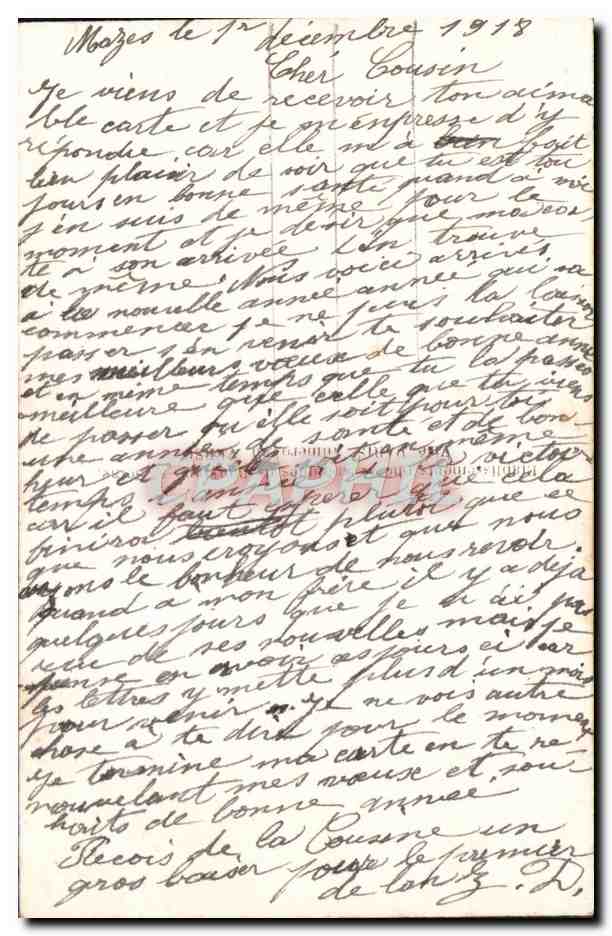 Mazes le 1r décembre 1918
Cher Cousin
Je viens de recevoir ton aima
ble carte et je m'enpresse d'y
répondre car elle m'à fait
bien plaisir de voir que tu est tou
jours en bonne santé quand à moi
j'en suis de même pour le
moment et je désir que ma car
te à son arrivée t'en trouve
de même. Nous voici arrivés
à la nouvelle année année qui va
commencer je ne puis la laisser
passer s'en venir te souhaiter
mes meilleurs voeux de bonne année
et en même temps que tu la passe
meilleure que celle que tu viens
de passer qu'elle soit pour toi
une année de santé et de bon-
heur et que en même
temps l'année victoi
car il faut espere que cela
finira plutot que ce
que nous croyons et que nous
ayons le bonheur de nous revoir.
quand a mon frère il y a déjà
quelques jours que je n'ai pas
reçu de ses nouvelles mais je
pense en avoir as jours ci car
les lettres y mette plus d'un mois
pour venir. Je ne vois autre
chose à te dire pour le moment
je termine ma carte en te re-
nouvelant mes voeux et sou-
haits de bonne année.
Recois de la Cousine un
gros baiser pour le premier
de l'an Z. D.
CPAPHIL